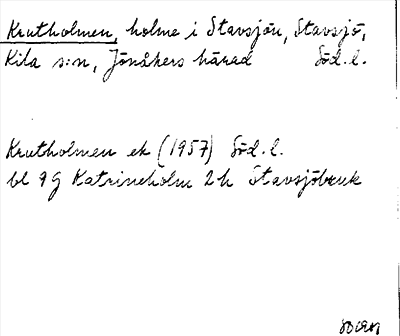 Krutholmen, holme i Stavsjön, Stavsjö,
Kila s:n, Jönåkers härad Söd.l.
Krutholmen ek (1957) Söd.l.
bl 9G Katrineholm 2h Stavsjöbruk